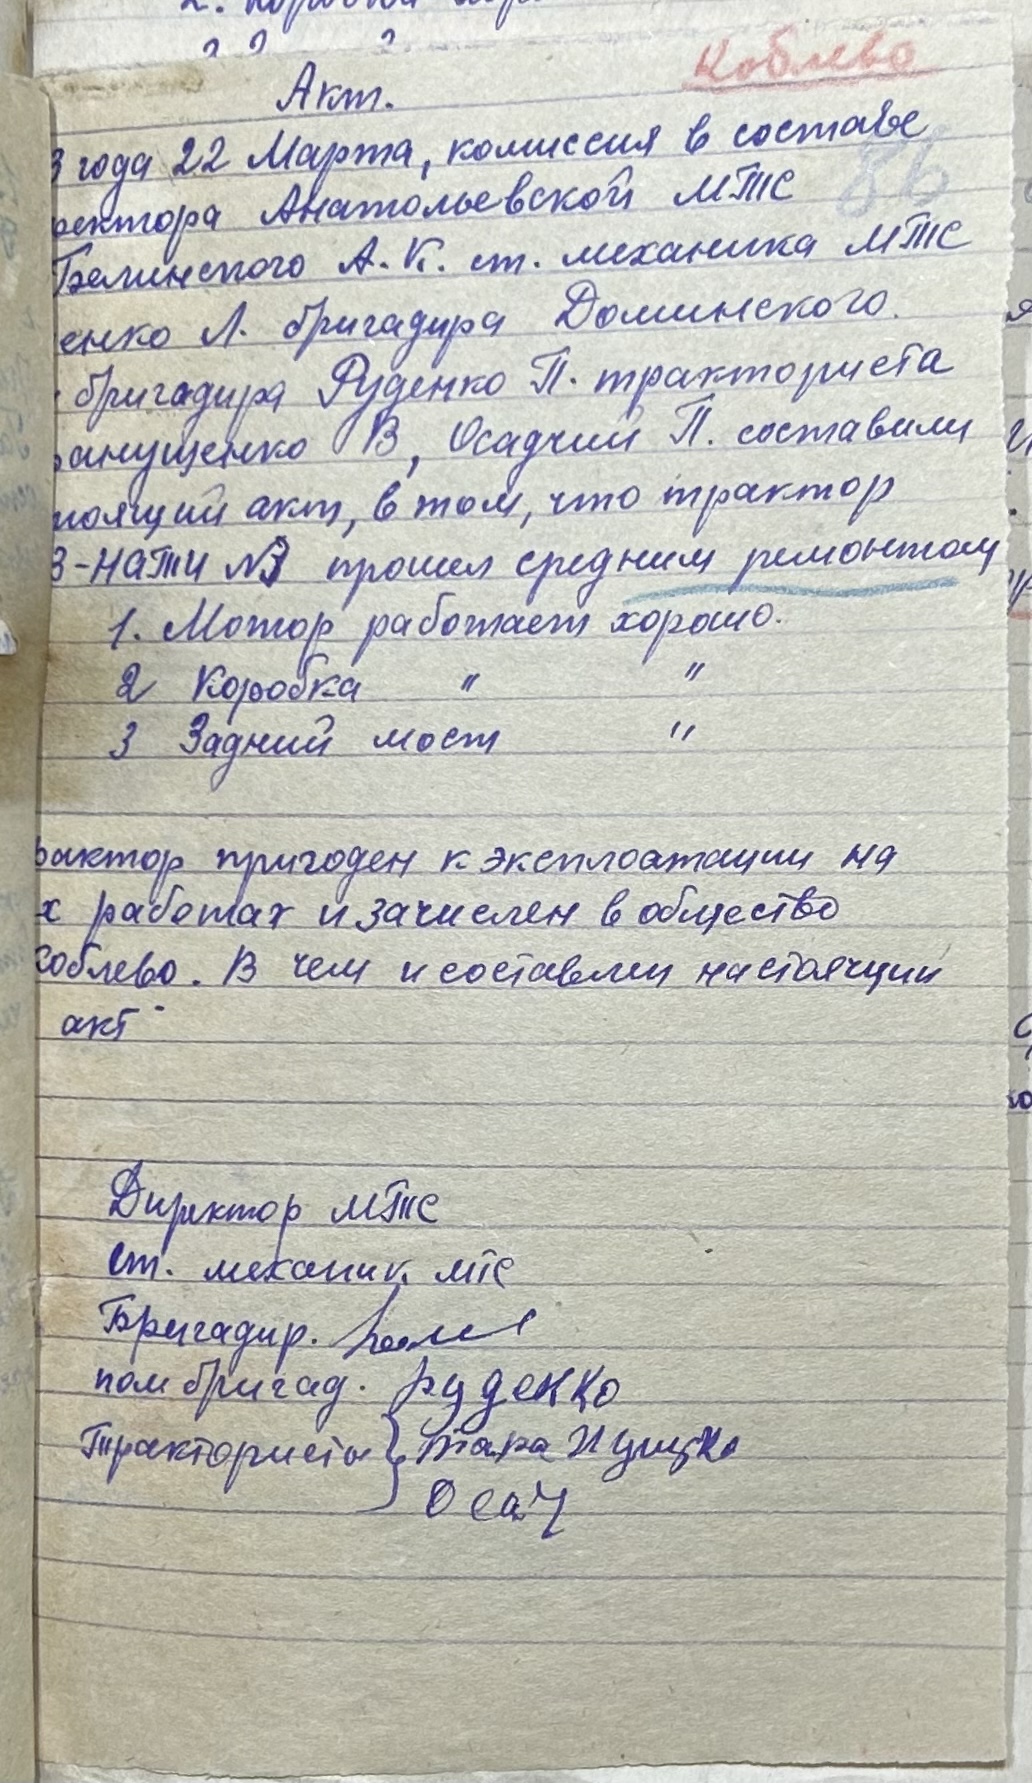 Коблево
86
Акт.
3 года 22 Марта, комиссия в составе
ректора Анатольевской МТС
Белинского А.К. ст. механика МТС
енко Л. бригадира Доминского.
бригадира Руденко П. тракториста
ранущенко В, Осадчий П. составили
тоящий акт, в том, что трактор
З-НАТИ №3 прошел средним ремонтом
1. Мотор работает хорошо.
2 Коробка " "
3 Задний мост "
рактор пригоден к эксплоатации на
х работах и зачислен в общество
Коблево. В чем и составлен настоящий
акт
Директор МТС
Ст. механик МТС
Бригадир.
пом бригад. Руденко
Трактористы Таранущко
Осач